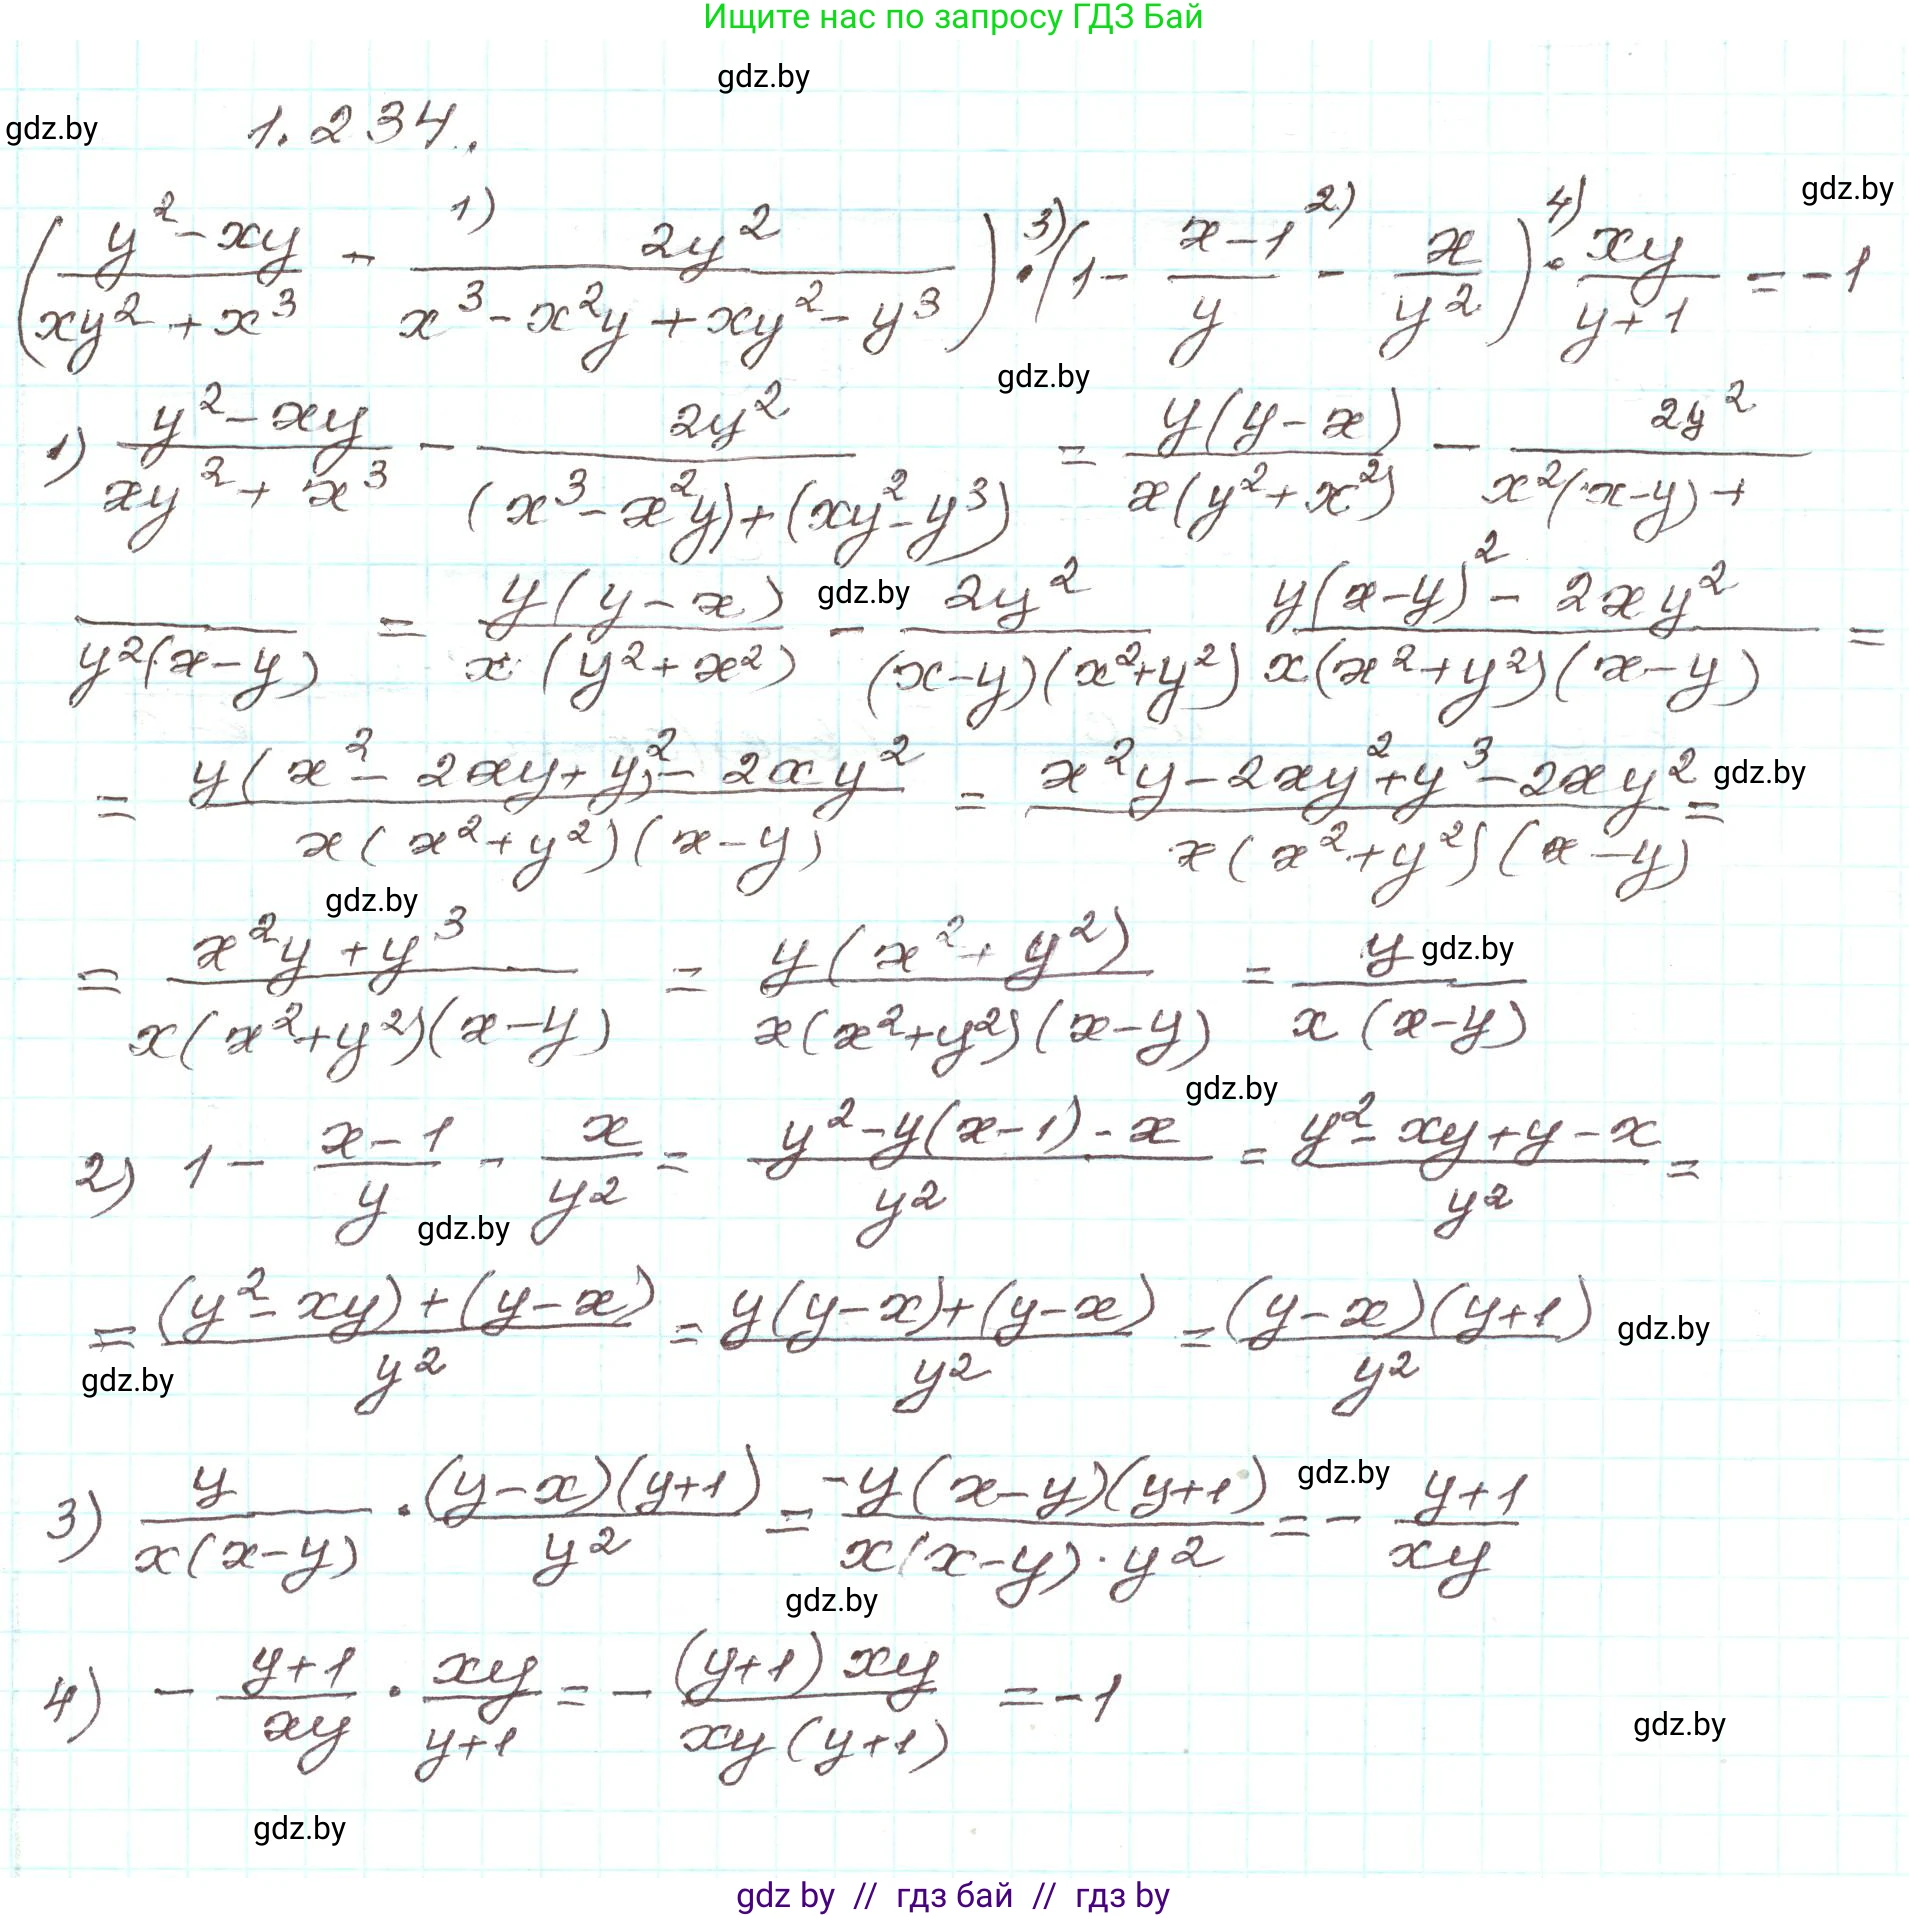 Ищите нас по запросу ГДЗ Бай
gdz.by
gdz.by 1.234.
gdz.by
( (y² - xy)/(xy² + x³) - 1) 2y²/(x³ - x²y + xy² - y³) ) ·3) (1 - (x-1)/y 2) - x/y²) ·4) xy/(y+1) = -1
gdz.by
1) (y² - xy)/(xy² + x³) - 2y²/((x³ - x²y) + (xy² - y³)) = y(y-x)/(x(y² + x²)) - 2y²/(x²(x-y) +
/y²(x-y)) = y(y-x)/(x(y² + x²)) gdz.by - 2y²/((x-y)(x²+y²)) (y(x-y)² - 2xy²)/(x(x²+y²)(x-y)) =
= (y(x² - 2xy + y²) - 2xy²)/(x(x²+y²)(x-y)) = (x²y - 2xy² + y³ - 2xy²)/(x(x²+y²)(x-y)) = gdz.by
gdz.by
= (x²y + y³)/(x(x²+y²)(x-y)) = y(x² + y²)/(x(x²+y²)(x-y)) = y/(x(x-y)) gdz.by
gdz.by
2) 1 - (x-1)/y - x/y² = (y² - y(x-1) - x)/y² = (y² - xy + y - x)/y² =
gdz.by
= ((y² - xy) + (y-x))/y² = (y(y-x) + (y-x))/y² = (y-x)(y+1)/y² gdz.by
gdz.by
3) y/(x(x-y)) · (y-x)(y+1)/y² = -y(x-y)(y+1)/(x(x-y)·y²) = - (y+1)/xy gdz.by
gdz.by
4) - (y+1)/xy · xy/(y+1) = - (y+1)xy/(xy(y+1)) = -1
gdz.by
gdz.by
gdz by // гдз бай // гдз by